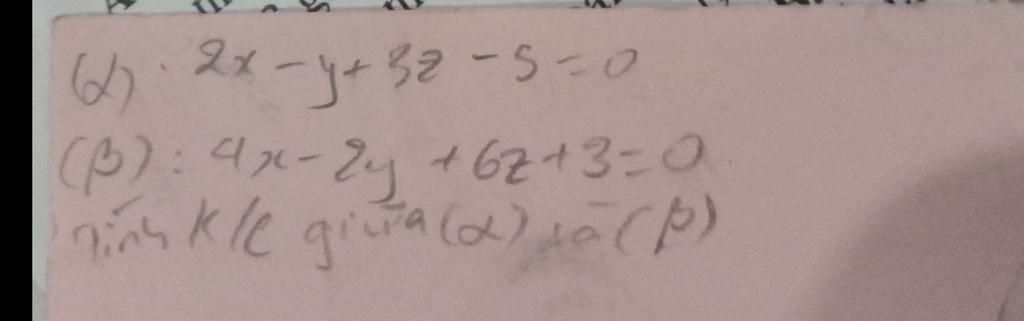 (α): 2x - y + 3z - 5 = 0
(β): 4x - 2y + 6z + 3 = 0
Tính k/c giữa (α) và (β)